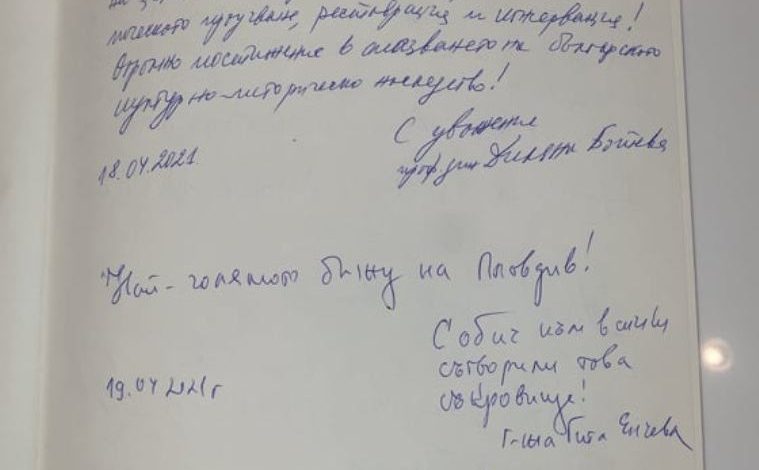 на
логическото проучване, реставрация и консервация!
Огромно постижение в опазването на българското
културно-историческо наследство!
С уважение
18.04.2021.
проф. Диляна Ботева
"Най-голямото бижу на Пловдив!
С обич към всички
сътворили това
19.04.2021г
съкровище!
Г-жа Гита Енчева